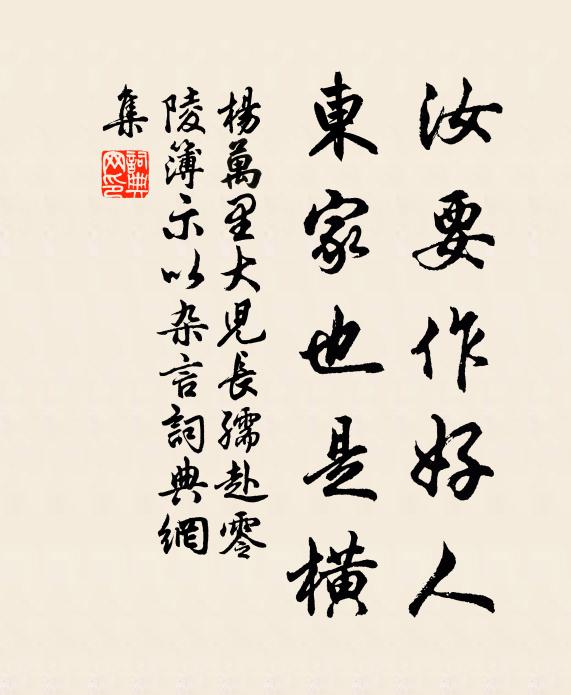 汝要作好人
東家也是横
楊萬里大児長孺赴零
陵簿示以杂言詞典網
集
詞典
网印